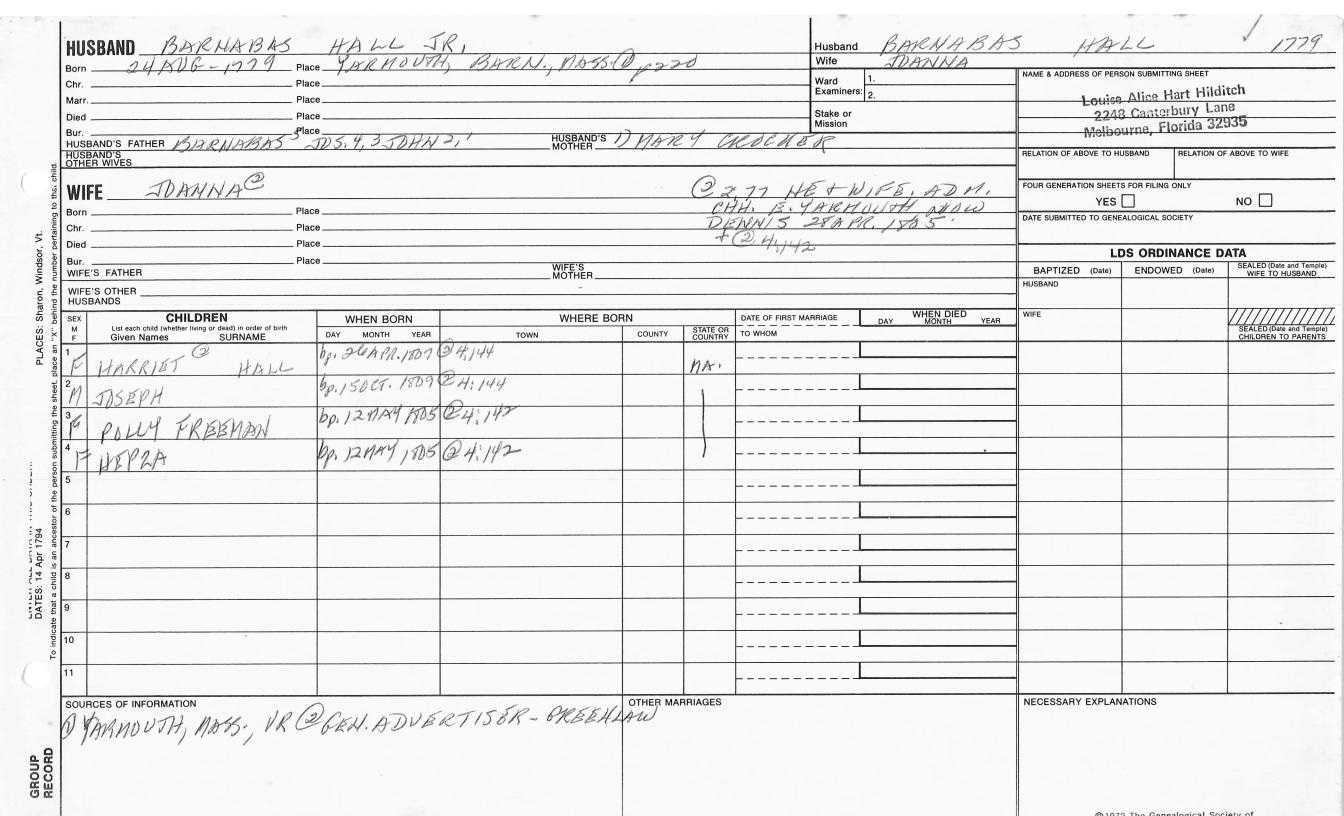 HUSBAND BARNABAS HALL JR.
Born 24 AUG - 1779 Place YARMOUTH, BARN., MASS ① p220
Chr. Place
Marr. Place
Died Place
Bur. Place
HUSBAND'S FATHER BARNABAS 5 JOS. 4, 3 JOHN 2, 1 HUSBAND'S MOTHER 1) MARY CROCKER
HUSBAND'S OTHER WIVES
Husband BARNABAS HALL 1779
Wife JOANNA
Ward Examiners: 1.
2.
Stake or Mission
NAME & ADDRESS OF PERSON SUBMITTING SHEET
Louise Alice Hart Hilditch
2248 Canterbury Lane
Melbourne, Florida 32935
RELATION OF ABOVE TO HUSBAND RELATION OF ABOVE TO WIFE
FOUR GENERATION SHEETS FOR FILING ONLY
YES NO
DATE SUBMITTED TO GENEALOGICAL SOCIETY
WIFE JOANNA ②
② 2,77 HE + WIFE, ADM.
CHH. E. YARMOUTH NOW
DENNIS 28 APR. 1805.
+ ② 4:142
Born Place
Chr. Place
Died Place
Bur. Place
WIFE'S FATHER WIFE'S MOTHER
WIFE'S OTHER HUSBANDS
LDS ORDINANCE DATA
BAPTIZED (Date) ENDOWED (Date) SEALED (Date and Temple) WIFE TO HUSBAND
HUSBAND
WIFE
SEALED (Date and Temple) CHILDREN TO PARENTS
SEX M F
CHILDREN
List each child (whether living or dead) in order of birth
Given Names SURNAME
WHEN BORN
DAY MONTH YEAR
WHERE BORN
TOWN COUNTY STATE OR COUNTRY
DATE OF FIRST MARRIAGE
TO WHOM
WHEN DIED
DAY MONTH YEAR
1 F HARRIET ② HALL bp. 26 APR. 1807 ② 4:144 MA.
2 M JOSEPH bp. 15 OCT. 1809 ② 4:144
3 F POLLY FREEMAN bp. 12 MAY 1805 ② 4:142
4 F HEPZA bp. 12 MAY 1805 ② 4:142
5
6
7
8
9
10
11
SOURCES OF INFORMATION
① YARMOUTH, MASS., VR ② GEN. ADVERTISER - GREENLAW
OTHER MARRIAGES
NECESSARY EXPLANATIONS
PLACES: Sharon, Windsor, Vt.
DATES: 14 Apr 1794
To indicate that a child is an ancestor of the person submitting the sheet, place an "X" behind the number pertaining to that child.
GROUP RECORD